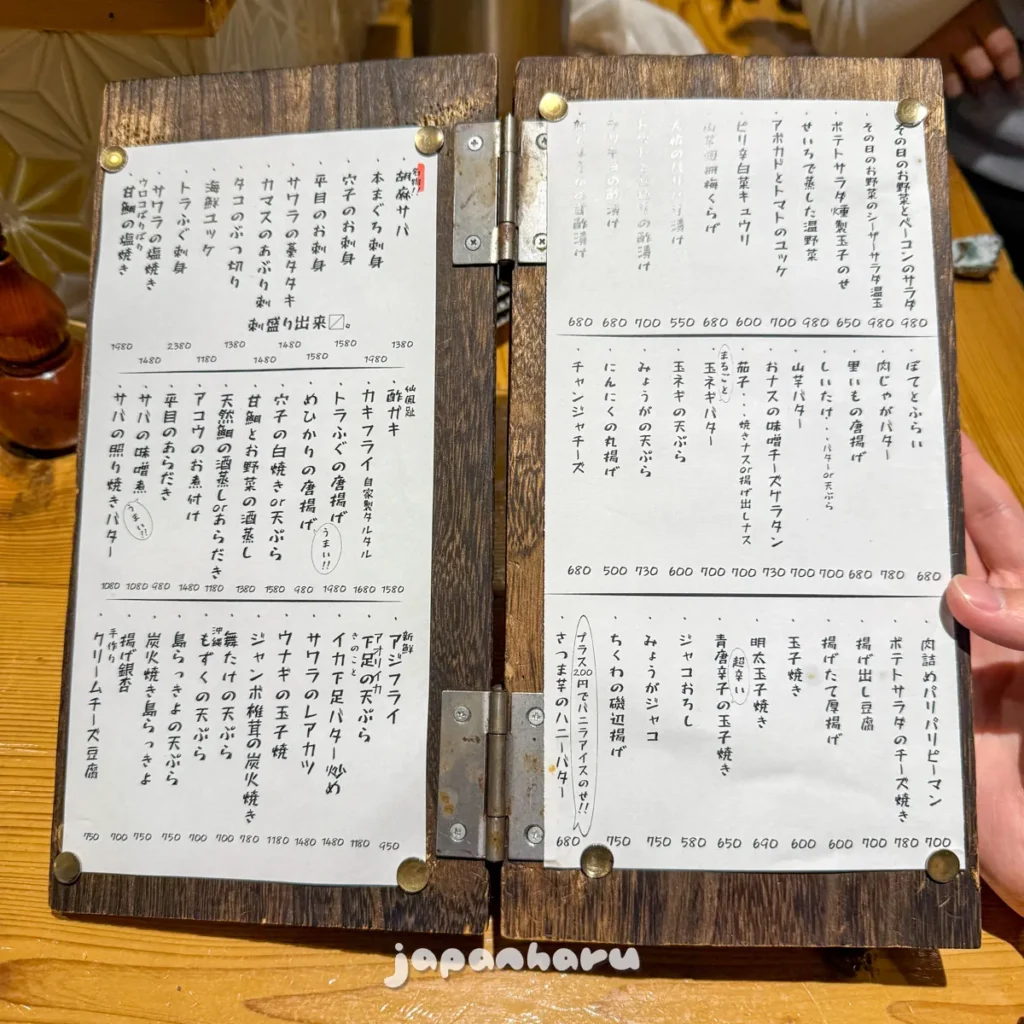 その日のお野菜とベーコンのサラダ 980
その日のお野菜のシーザーサラダ温玉 980
ポテトサラダ燻製玉子のせ 650
せいろで蒸した温野菜 980
アボカドとトマトのユッケ 700
ピリ辛白菜キュウリ 600
梅くらげ 680
漬け 550
の酢漬け 700
漬け 680
の甘酢漬け 680
ぽてとふらい 680
肉じゃがバター 780
里いもの唐揚げ 680
しいたけ・・バターor天ぷら 700
山芋バター 700
おナスの味噌チーズグラタン 730
茄子・・・焼きナスor揚げ出しナス 700
まるごと
玉ネギバター 700
玉ネギの天ぷら 600
みょうがの天ぷら 730
にんにくの丸揚げ 500
チャンジャチーズ 680
肉詰めパリパリピーマン 700
ポテトサラダのチーズ焼き 780
揚げ出し豆腐 700
揚げたて厚揚げ 600
玉子焼き 600
明太玉子焼き 690
超辛い
青唐辛子の玉子焼き 650
ジャコおろし 580
みょうがジャコ 750
ちくわの磯辺揚げ 750
プラス200円でバニラアイスのせ!!
さつま芋のハニーバター 680
名物!!
胡麻サバ 1380
本まぐろ刺身 1980
穴子のお刺身 1580
平目のお刺身 1580
サワラの藁タタキ 1480
カマスのあぶり刺 1480
タコのぶつ切り 1380
海鮮ユッケ 1180
トラふぐ刺身 2380
サワラの塩焼き 1480
ウロコぱりぱり
甘鯛の塩焼き 1980
刺盛り出来〼。
仙鳳趾
酢ガキ 1580
カキフライ 自家製タルタル 1680
トラふぐの唐揚げ うまい!! 1980
めひかりの唐揚げ 980
穴子の白焼きor天ぷら 1580
甘鯛とお野菜の酒蒸し 1380
天然鯛の酒蒸しorあらだき 1180
アコウのお煮付け 1480
平目のあらだき 980
サバの味噌煮 うまい!! 1080
サバの照り焼きバター 1080
新鮮
アジフライ 950
アオリイカ
下足の天ぷら 1180
きのこと
イカ下足バター炒め 1480
サワラのレアカツ 1480
ウナギの玉子焼 1180
ジャンボ椎茸の炭火焼き 780
舞たけの天ぷら 700
沖縄
もずくの天ぷら 700
島らっきょの天ぷら 750
炭火焼き島らっきょ 750
揚げ銀杏 700
手作り
クリームチーズ豆腐 750
japanharu